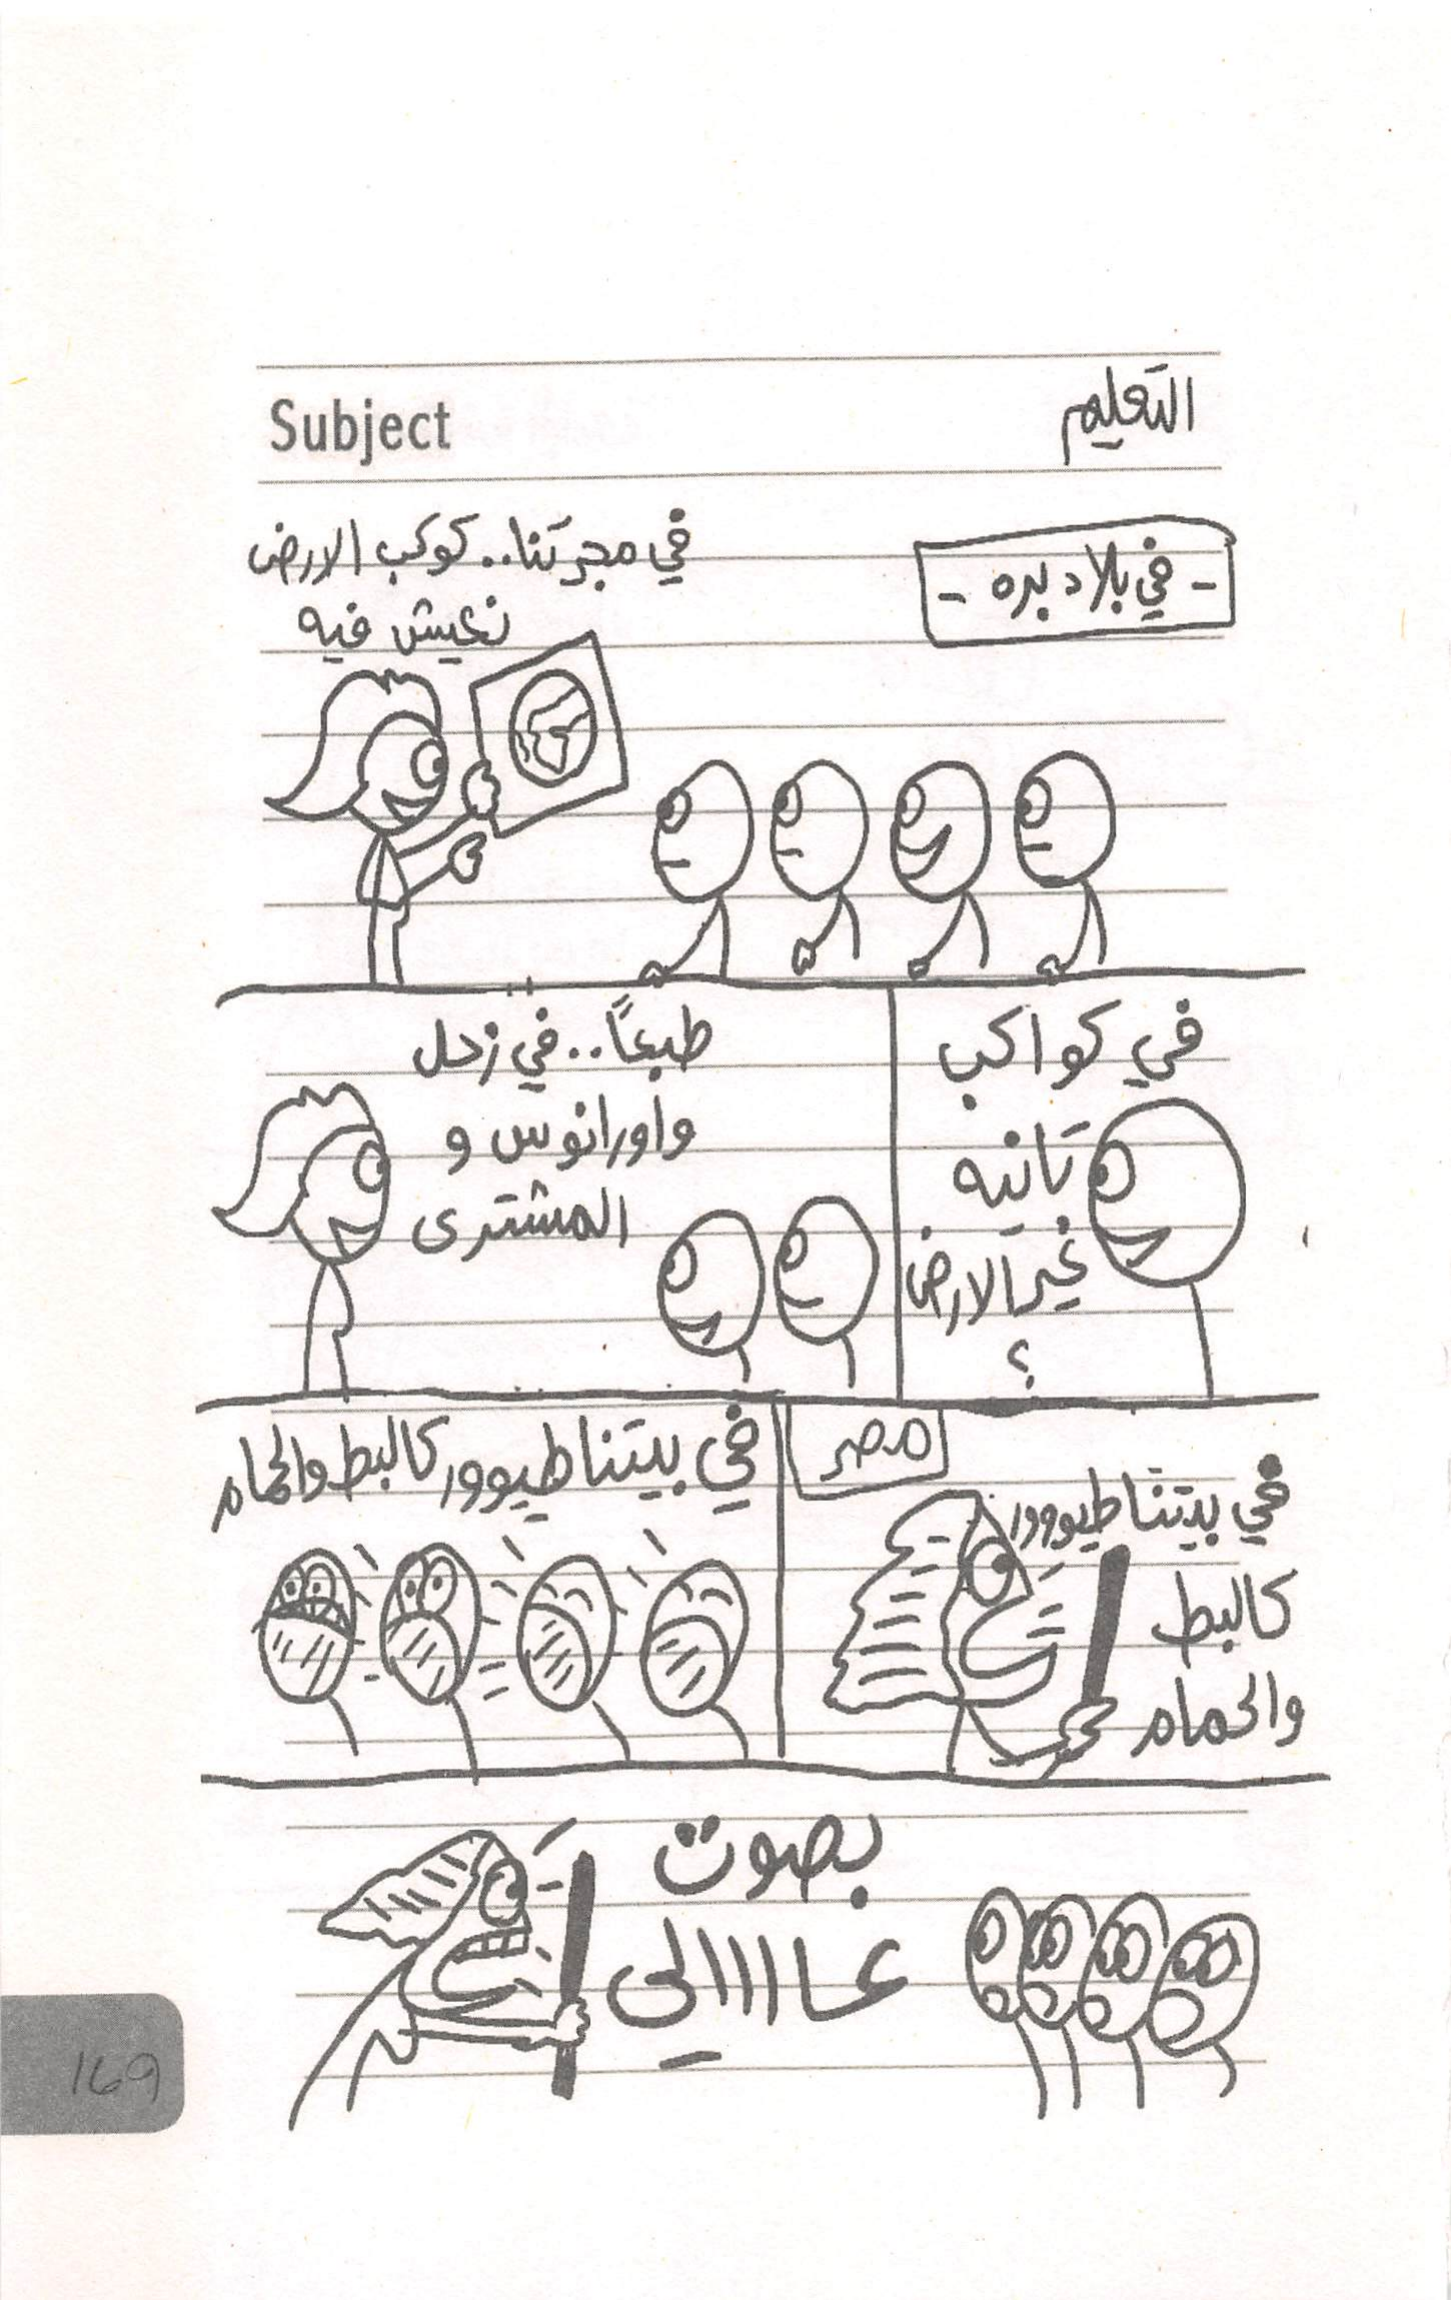 Subject
التعليم
- في بلاد بره -
في مجرتنا.. كوكب الارض
نعيش فيه
في كواكب
تانيه
غير الارض
؟
طبعاً.. في زحل
واورانوس و
المشترى
مصر
في بيتنا طيوور
كالبط
والحمام
في بيتنا طيوور كالبط والحمام
بصوت
عاااالي
169